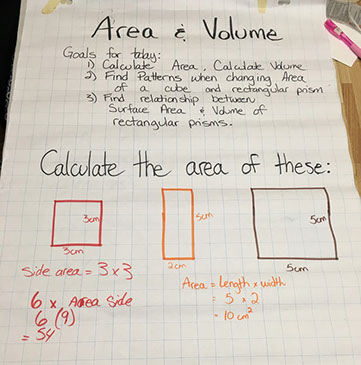 Area & Volume
Goals for today:
1) Calculate Area, Calculate Volume
2) Find Patterns when changing Area
of a cube and rectangular prism
3) Find relationship between
Surface Area & Volume of
rectangular prisms.
Calculate the area of these:
3cm
3cm
5cm
2cm
5cm
5cm
Side area = 3 x 3
6 x Area Side
6 (9)
= 54
Area = Length x width
= 5 x 2
= 10 cm²